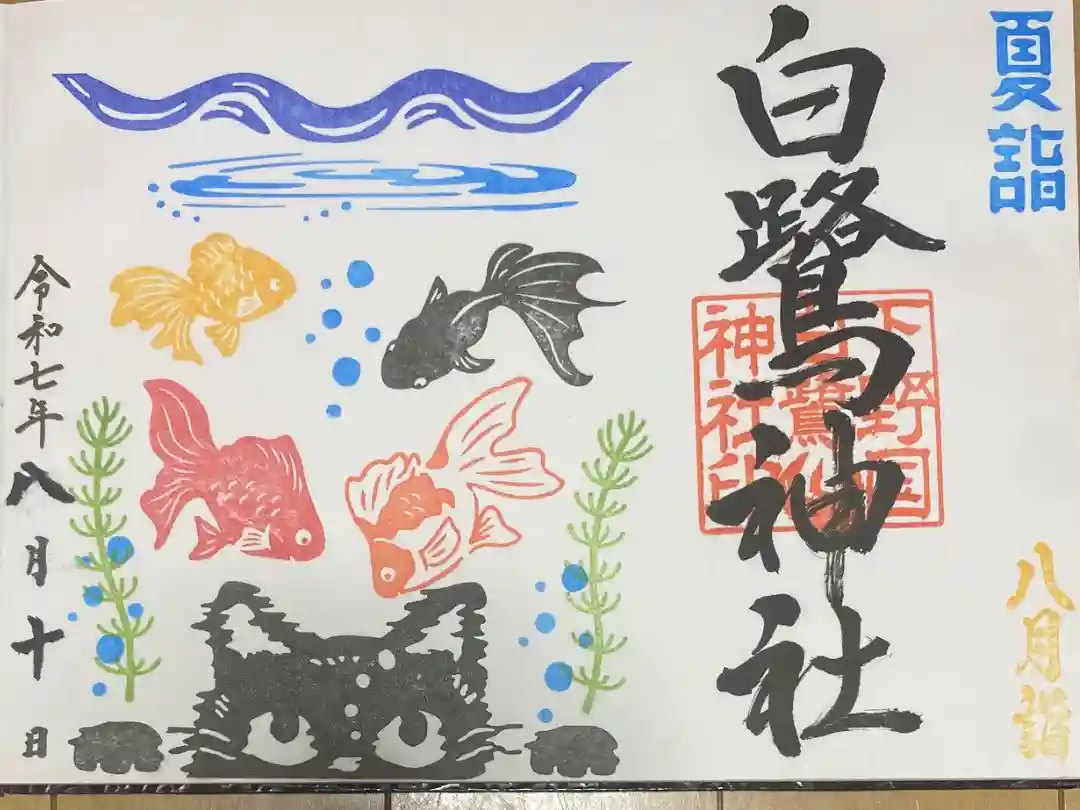 夏詣
八月詣
白鷺神社
下野国
白鷺
神社印
令和七年八月十日